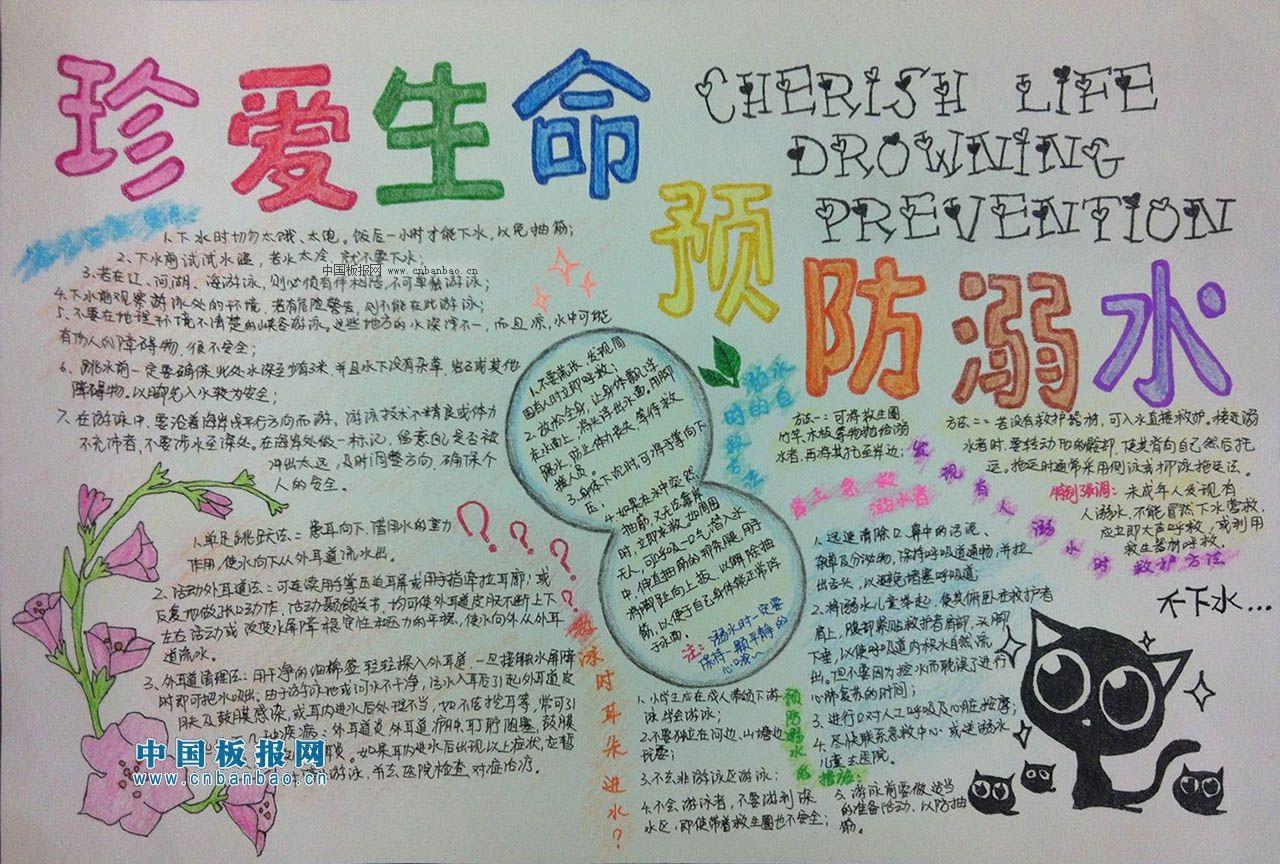 珍爱生命
CHERISH LIFE
DROWNING
PREVENTION
预
防溺水
1.下水时切勿太饿、太饱。饭后一小时才能下水,以免抽筋;
2.下水前试试水温,若水太冷,就不要下水;
中国板报网 www.cnbanbao.cn
3.若在江、河湖、海游泳,则必须有伴相陪,不可单独游泳;
4.下水前观察游泳处的环境,若有危险警告,则不能在此游泳;
5.不要在地理环境不清楚的峡谷游泳。这些地方的水深浅不一,而且凉,水中可能
有伤人的障碍物,很不安全;
6.跳水前一定要确保此处水深至少有3米,并且水下没有杂草、岩石或其他
障碍物。以脚先入水较为安全;
7.在游泳中,要沿着海岸线平行方向而游,游泳技术不精良或体力
不充沛者,不要涉水至深处。在海岸处做一标记,留意自己是否被
冲出太远,及时调整方向,确保个
人的安全。
1.单足跳跃法:患耳向下,借用水的重力
作用,使水向下从外耳道流水出。
2.活动外耳道法:可连续用手掌压迫耳屏或用手指牵拉耳廓;或
反复地做张口动作,活动颞颌关节,均可使外耳道皮肤不断上下
左右活动或改变水屏障稳定性和压力的平衡,使水向外从外耳
道流水。
3.外耳道清理法:用干净的细棉签轻轻探入外耳道,一旦接触水屏障
时即可把水吸出;由于游泳池或河水不干净,污水入耳后引起外耳道皮
肤及鼓膜感染,或耳内进水后处理不当,如不洁挖耳等,常可引
疾病:外耳道炎外耳道疖肿耵聍胞塞,鼓膜
如果耳内进水后出现以上症状,应暂
游泳,并去医院检查,对症治疗。
???
游泳时耳朵进水?
1.不要慌张,发现周
围有人时立即呼救;
2.放松全身,让身体飘浮
在水面上,将头浮出水面,用脚
踢水,防止体力丧失,等待救
援人员。
3.身体下沉时,可将手掌向下
压;
4.如果在水中突然
抽筋,又无法靠岸
时,立即求救。如周围
无人,可深吸一口气,潜入水
中,伸直抽筋的那条腿,用手
将脚趾向上扳,以解除抽
筋,以便于自己身体能正常浮
于水面。
注:溺水时一定要
保持一颗平静的
心哦~
溺水
时的自
救方法
方法一:可将救生圈
竹竿、木板等物抛给溺
水者,再将其拖至岸边;
方法二:若没有救护器材,可入水直接救护。接近溺
水者时,要转动他的髋部,使其背向自己然后托
运。拖运时通常采用侧泳或仰泳拖运法。
特别强调:未成年人发现有
人溺水,不能冒然下水营救,
应立即大声呼救,或利用
救生器材呼救。
发现有人溺水时救护方法
岸上急救
溺水者
1.迅速清除口、鼻中的污泥、
杂草及分泌物,保持呼吸道通畅,并拉
出舌头,以避免堵塞呼吸道
2.将溺水儿童举起,使其俯卧在救护者
肩上,腹部紧贴救护者肩部,头脚
下垂,以使呼吸道内积水自然流
出。但不要因为控水而耽误了进行
心肺复苏的时间;
3.进行口对人工呼吸及心脏按摩;
4.尽快联系急救中心或送溺水
儿童去医院。
不下水…
预防溺水的措施:
1.小学生应在成人带领下游
泳,学会游泳;
2.不要独在河边、山塘边
玩耍;
3.不去非游泳区游泳;
4.不会游泳者,不要游到深
水区,即使带着救生圈也不安全;
5.游泳前要做适当
的准备活动,以防抽
筋。
中国板报网
www.cnbanbao.cn